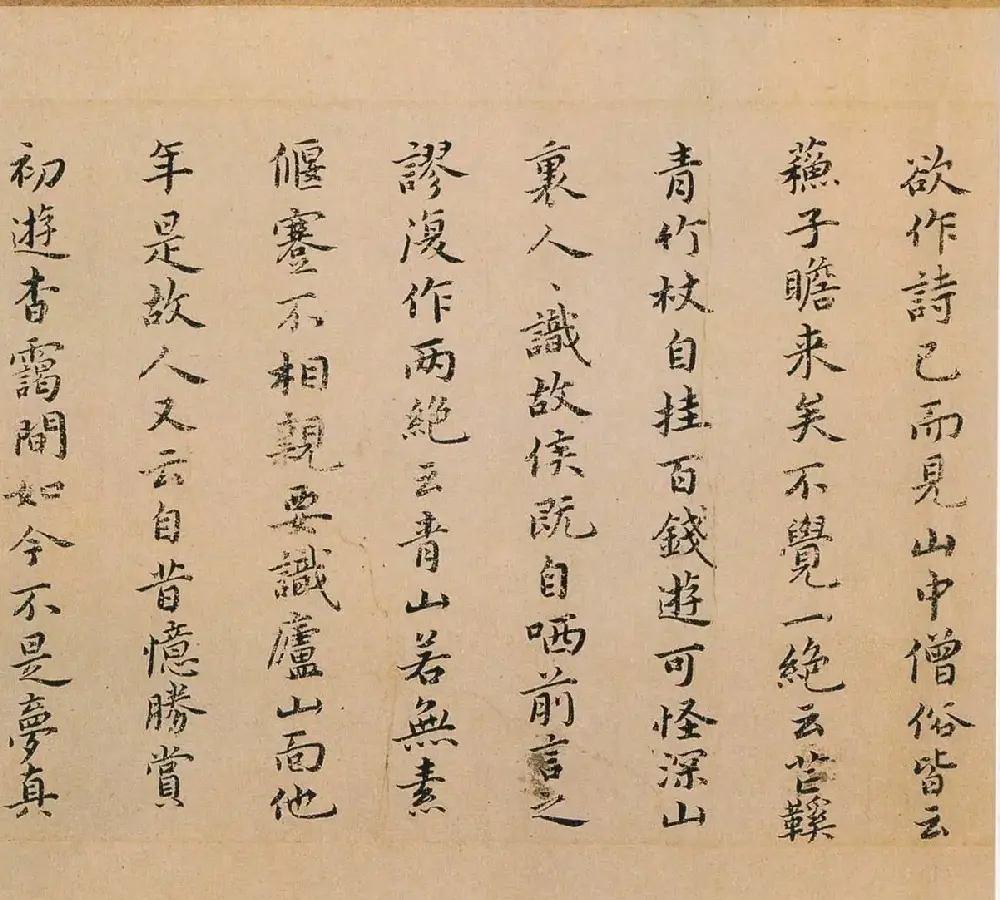 欲作詩已而見山中僧俗皆云
蘓子瞻来矣不覺一絶云芒鞵
青竹杖自挂百錢遊可怪深山
裏人〻識故侯既自哂前言之
謬復作兩絶云青山若無素
偃蹇不相親要識廬山面他
年是故人又云自昔憶勝賞
初遊杳靄間如今不是夢真